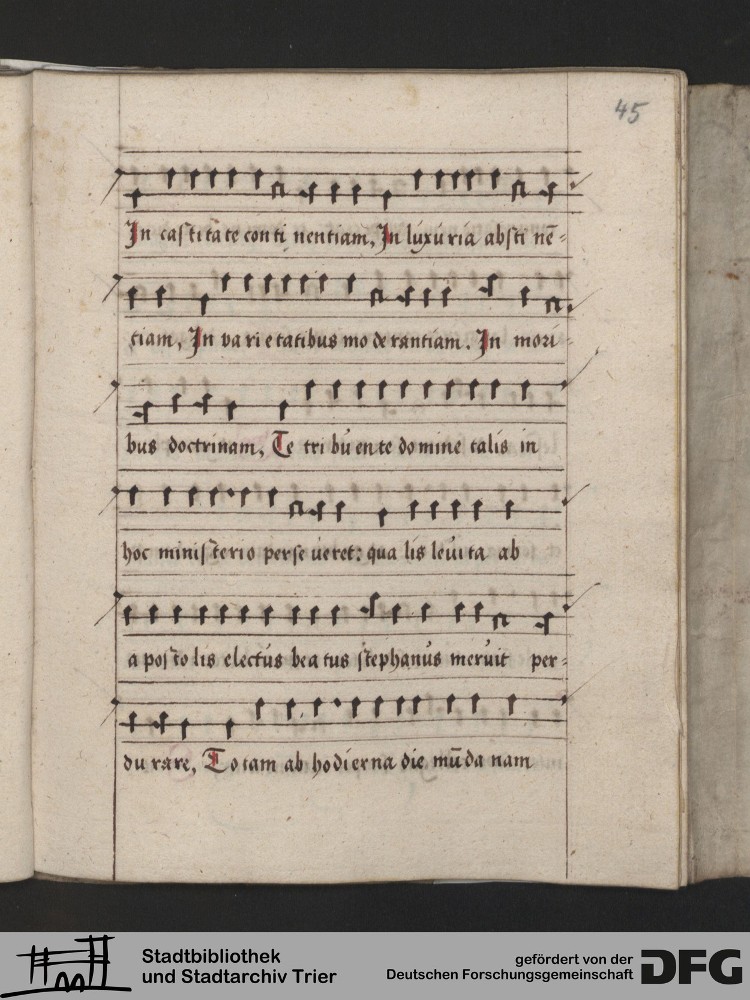 45
In castitate conti nentiam, In luxu ria absti nē=
tiam, In va ri e tatibus mo de rantiam. In mori=
bus doctrinam, Te tri bu en te do mine talis in
hoc minis terio perse ueret: qua lis leui ta ab
a pos to lis electus bea tus stephanus meruit per=
du rare, Totam ab hodierna die mūda nam
Stadtbibliothek
und Stadtarchiv Trier
gefördert von der
Deutschen Forschungsgemeinschaft
DFG